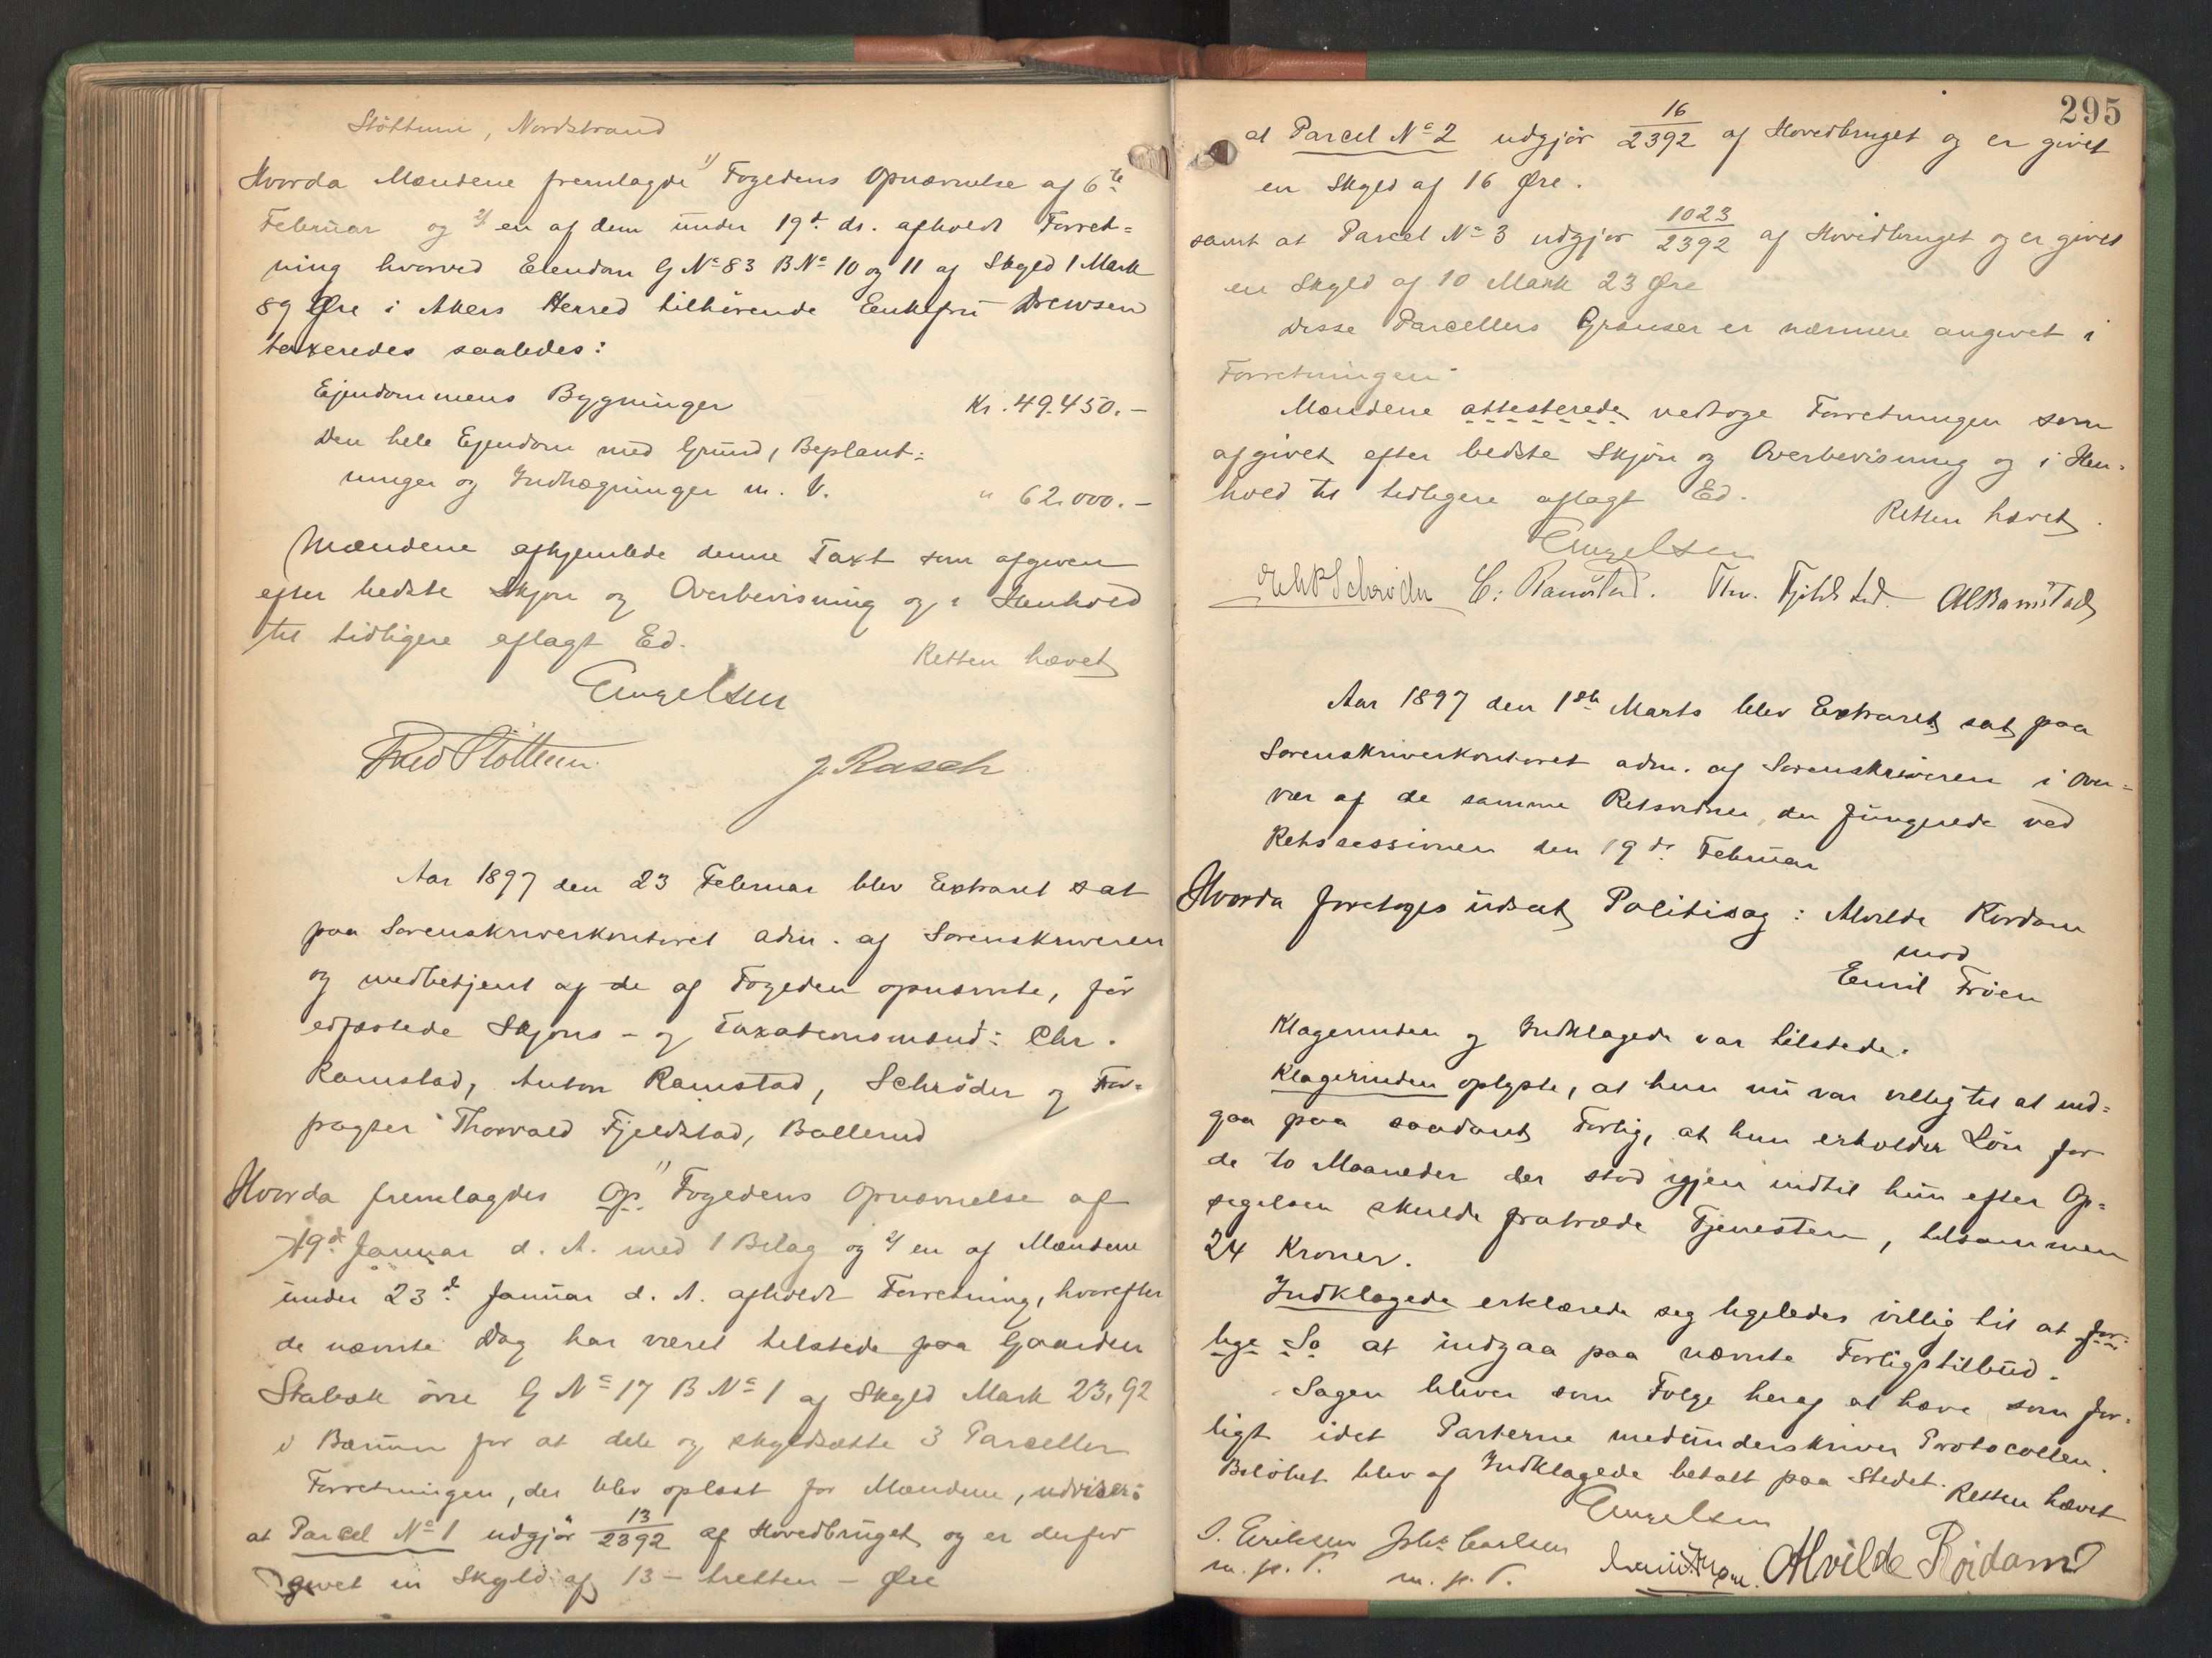 Støttum, Nordstrand
Hvorda Mændene fremlagde 1/ Fogedens Opnævnelse af 6te
Februar og 2/ en af dem under 19d. ds. afholdt Forret=
ning hvorved Eiendom G No 83 B No 10 og 11 af Skyld 1 Mark
89 Øre i Akers Herred tilhørende Enkefru Drewsen
taxeredes saaledes:
Ejendommens Bygninger Kr. 49.450.-
Den hele Ejendom med Grund, Beplant=
ninger og Indhægninger m. V. " 62.000.-
Mændene afhjemlede denne Taxt som afgiven
efter bedste Skjøn og Overbevisning og i Henhold
til tidligere aflagt Ed.
Retten hævet
Engelsen
Fred Støttum J. Rasch
Aar 1897 den 23 Februar blev Extraret sat
paa Sorenskriverkontoret adm. af Sorenskriveren
og medbetjent af de af Fogeden opnævnte, før
edfæstede Skjøns- og Taxationsmænd: Chr.
Ramstad, Anton Ramstad, Schrøder og For=
pagter Thorvald Fjeldstad, Ballerud
Hvorda fremlagdes Op. 1/ Fogedens Opnævnelse af
19d. Januar d. A. med 1 Bilag og 2/ en af Mændene
under 23d. Januar d. A. afholdt Forretning, hvorefter
de nævnte Dag har været tilstede paa Gaarden
Stabæk øvre G No 17 B No 1 af Skyld Mark 23,92
i Bærum for at dele og skyldsætte 3 Parceller
Forretningen, der blev oplæst for Mændene, udviser:
at Parcel No 1 udgjør 13/2392 af Hovedbruget og er derfor
givet en Skyld af 13 - tretten - Øre
295
at Parcel No 2 udgjør 16/2392 af Hovedbruget og er givet
en Skyld af 16 Øre.
samt at Parcel No 3 udgjør 1023/2392 af Hovedbruget og er givet
en Skyld af 10 Mark 23 Øre
Disse Parcellers Grænser er nærmere angivet i
Forretningen
Mændene attesterede vedtoge Forretningen som
afgivet efter bedste Skjøn og Overbevisning og i Hen=
hold til tidligere aflagt Ed.
Retten hævet.
Engelsen
Schrøder C. Ramstad. Thv. Fjeldstad. A Ramstad
Aar 1897 den 1ste Marts blev Extraret sat paa
Sorenskriverkontoret adm. af Sorenskriveren i Over=
vær af de samme Retsvidner, der fungerede ved
Retssessionen den 19d. Februar
Hvorda foretoges udsat Politisag: Alvilde Rørdam
mod
Emil Frøen
Klagerinden og Indklagede var tilstede.
Klagerinden oplyste, at hun nu var villig til at ind=
gaa paa saadant Forlig, at hun erholder Løn for
de to Maaneder der stod igjen indtil hun efter Op=
sigelsen skulde fratræde Tjenesten, tilsammen
24 Kroner.
Indklagede erklærede sig ligeledes villig til at for=
lige So at indgaa paa nævnte Forligstilbud.
Sagen bliver som Følge heraf at hæve som for=
ligt idet Parterne medunderskriver Protocollen.
Beløbet blev af Indklagede betalt paa Stedet. Retten hævet
Engelsen
S. Eriksen Johs Carlsen Emil Frøen. Alvilde Rørdam
m. p. P. m. p. P.